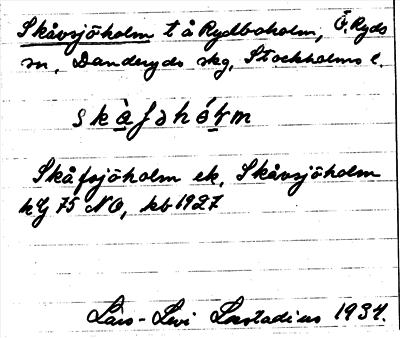 Skåvsjöholm t å Rydboholm, Ö. Ryds
sn, Danderyds skg, Stockholms l.
skàfshólm
Skåfsjöholm ek, Skåvsjöholm
hG 75 NO, kb 1927
Lars-Levi Læstadius 1934.